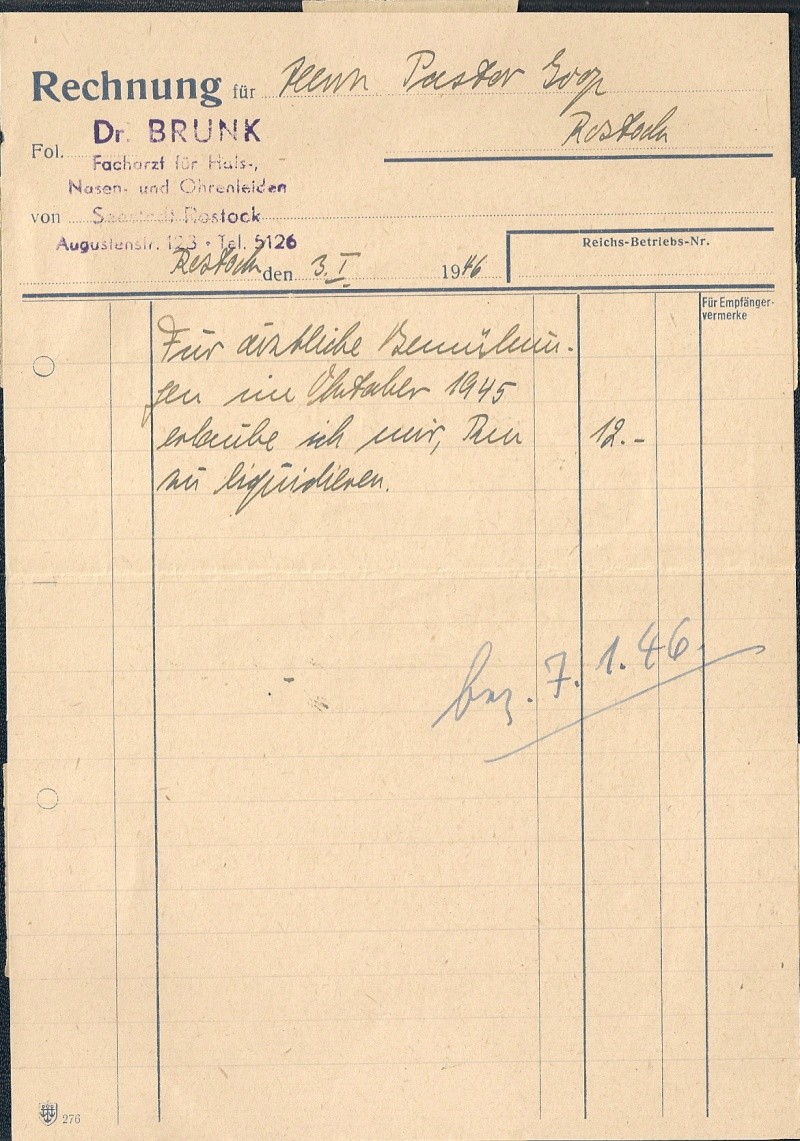 Rechnung für Herrn Pastor Goop
Rostock
Fol.
Dr. BRUNK
Facharzt für Hals-,
Nasen- und Ohrenleiden
von Seestadt Rostock
Augustenstr. 123 • Tel. 5126
Rostock den 3. I. 1946
Reichs-Betriebs-Nr.
Für Empfänger-
vermerke
Für ärztliche Bemühun-
gen im Oktober 1945
erlaube ich mir, 12.-
zu liquidieren.
bez. 7. 1. 46.
276